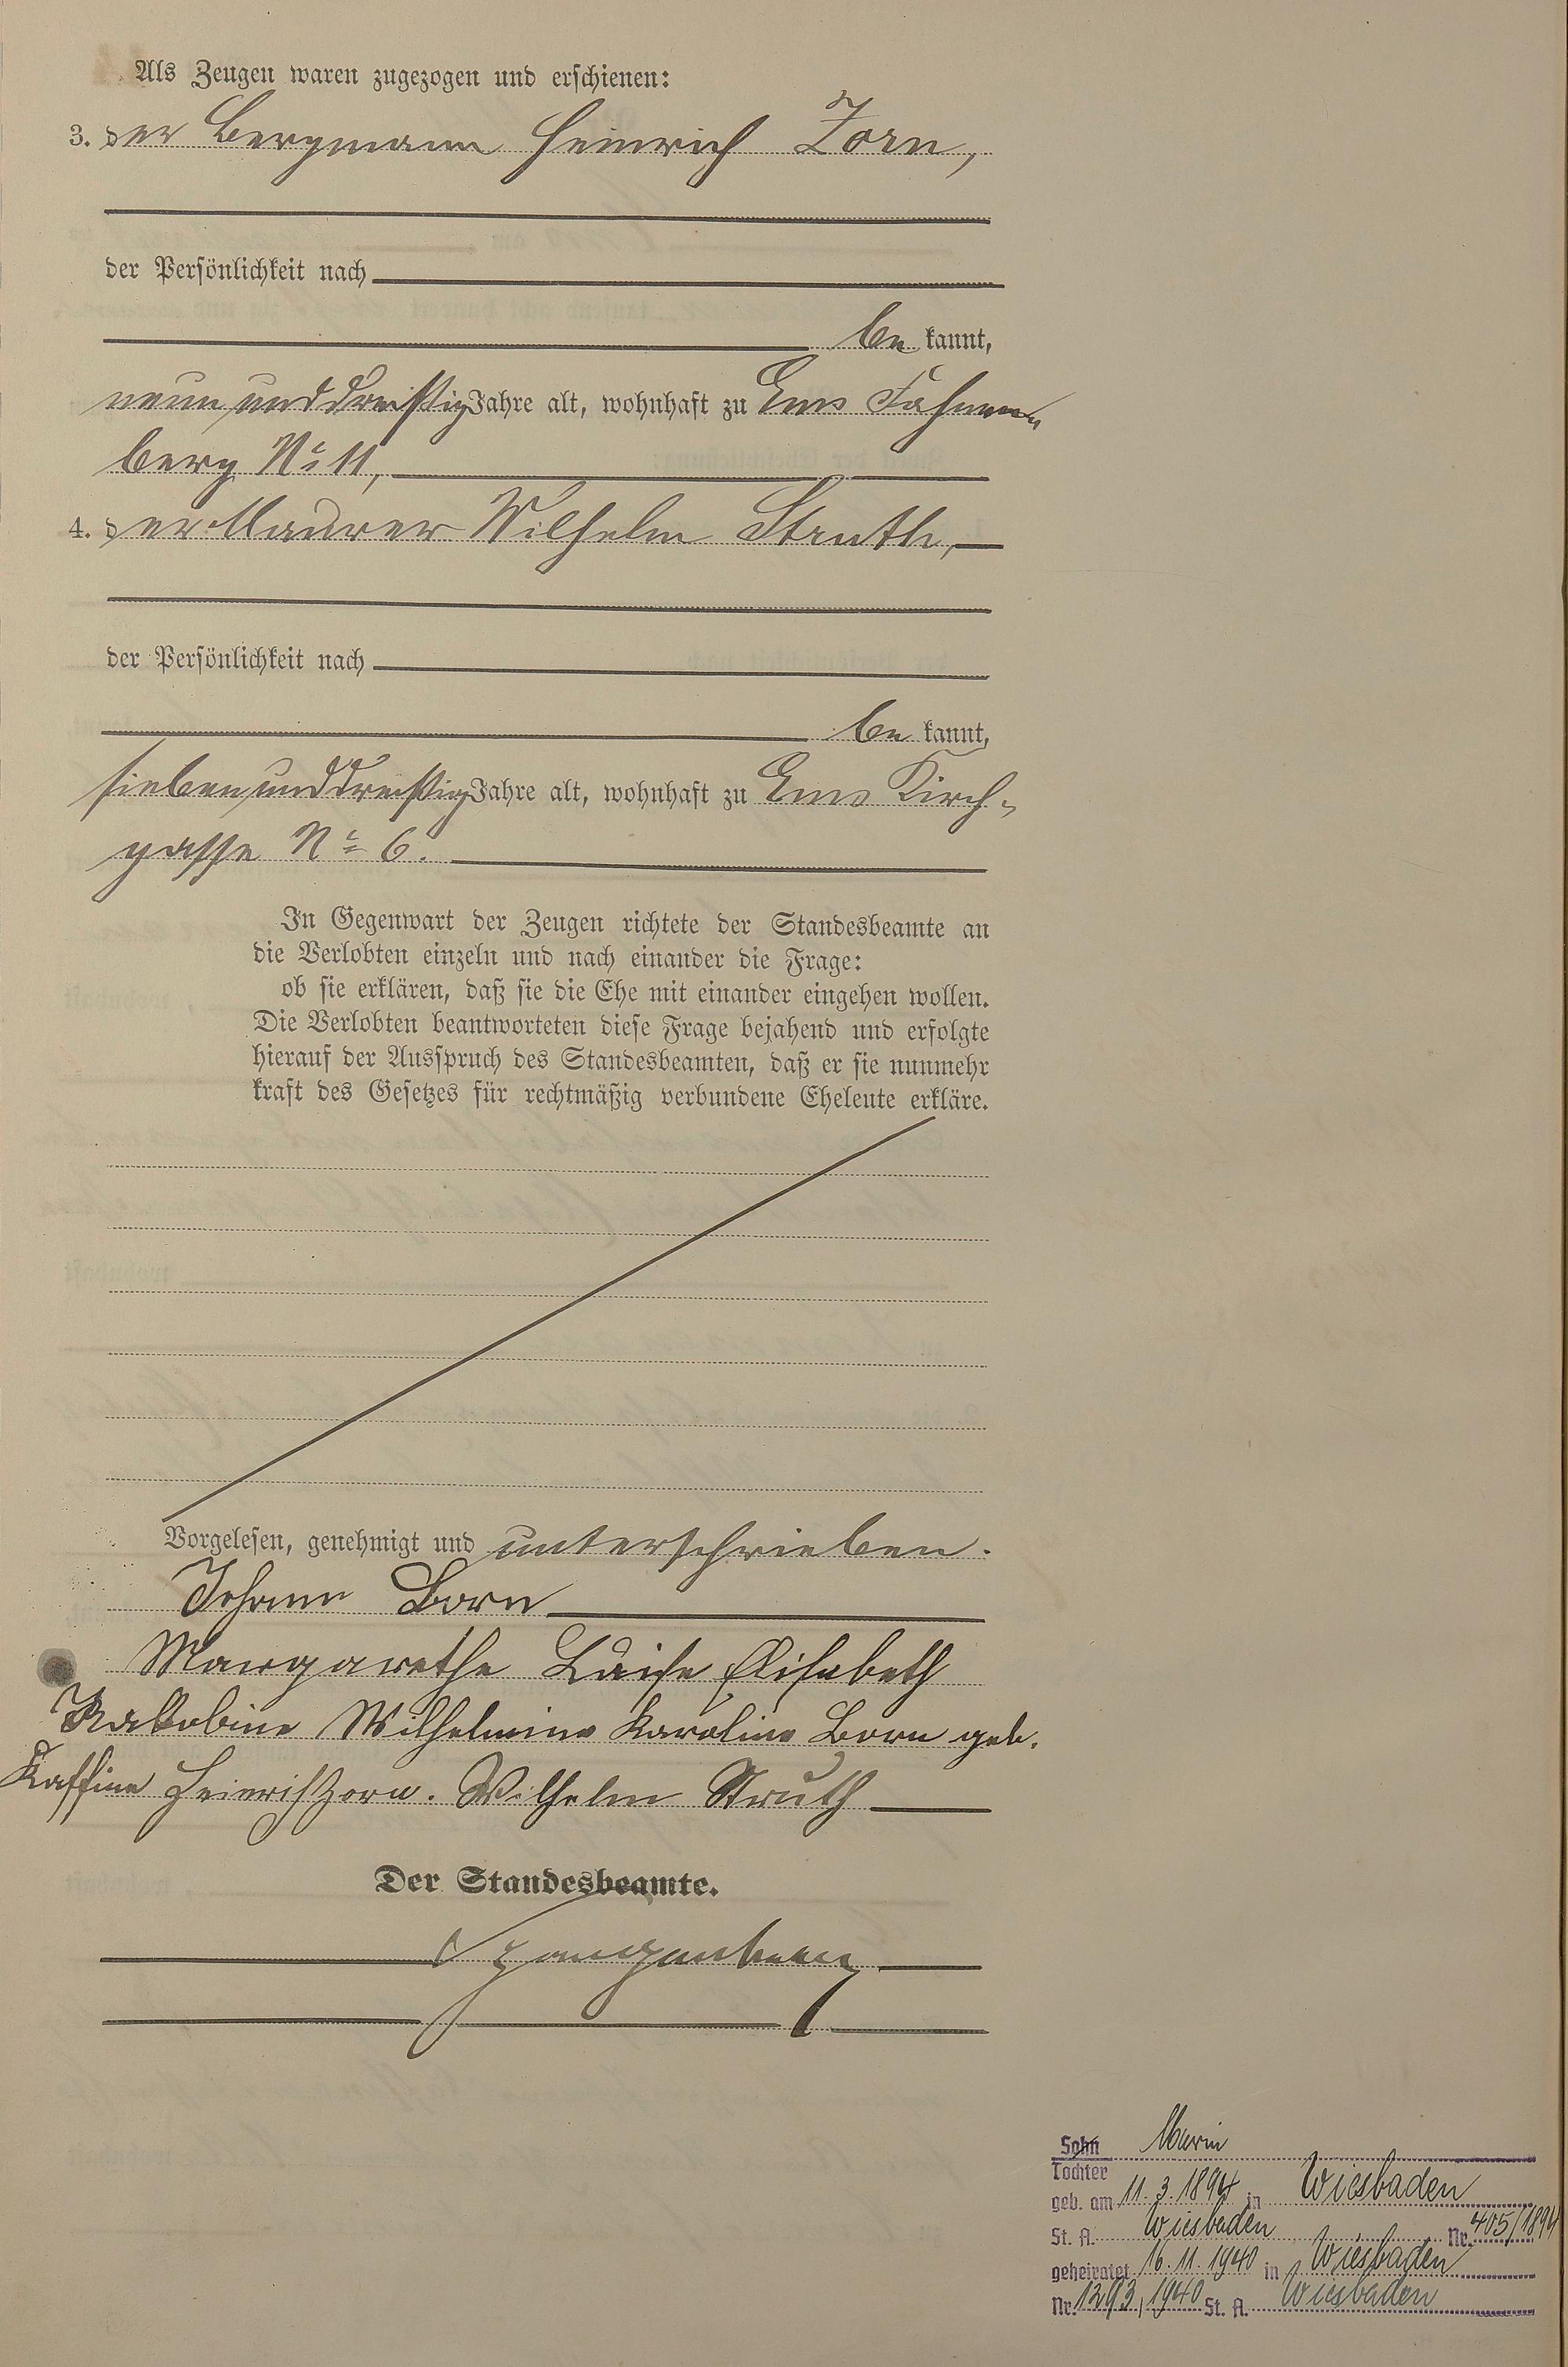 Als Zeugen waren zugezogen und erschienen:
3. der Bergmann Heinrich Zorn,
der Persönlichkeit nach
be kannt,
neun und dreißig Jahre alt, wohnhaft zu Ems Fahnen
berg No 11,
4. der Maurer Wilhelm Struth,
der Persönlichkeit nach
be kannt,
sieben und dreißig Jahre alt, wohnhaft zu Ems Kirch-
gasse No 6.
In Gegenwart der Zeugen richtete der Standesbeamte an
die Verlobten einzeln und nach einander die Frage:
ob sie erklären, daß sie die Ehe mit einander eingehen wollen.
Die Verlobten beantworteten diese Frage bejahend und erfolgte
hierauf der Ausspruch des Standesbeamten, daß er sie nunmehr
kraft des Gesetzes für rechtmäßig verbundene Eheleute erkläre.
Vorgelesen, genehmigt und unterschrieben.
Johann Born
Margarethe Luise Elisabeth
Jakobine Wilhelmine Karoline Born geb.
Kaffine Heinrich Zorn. Wilhelm Struth
Der Standesbeamte.
Spangenberg
Sohn
Tochter
geb. am 11. 3. 1894 in Wiesbaden
St. A. Wiesbaden Nr. 405/1894
geheiratet 16. 11. 1940 in Wiesbaden
Nr. 1293, 1940 St. A. Wiesbaden